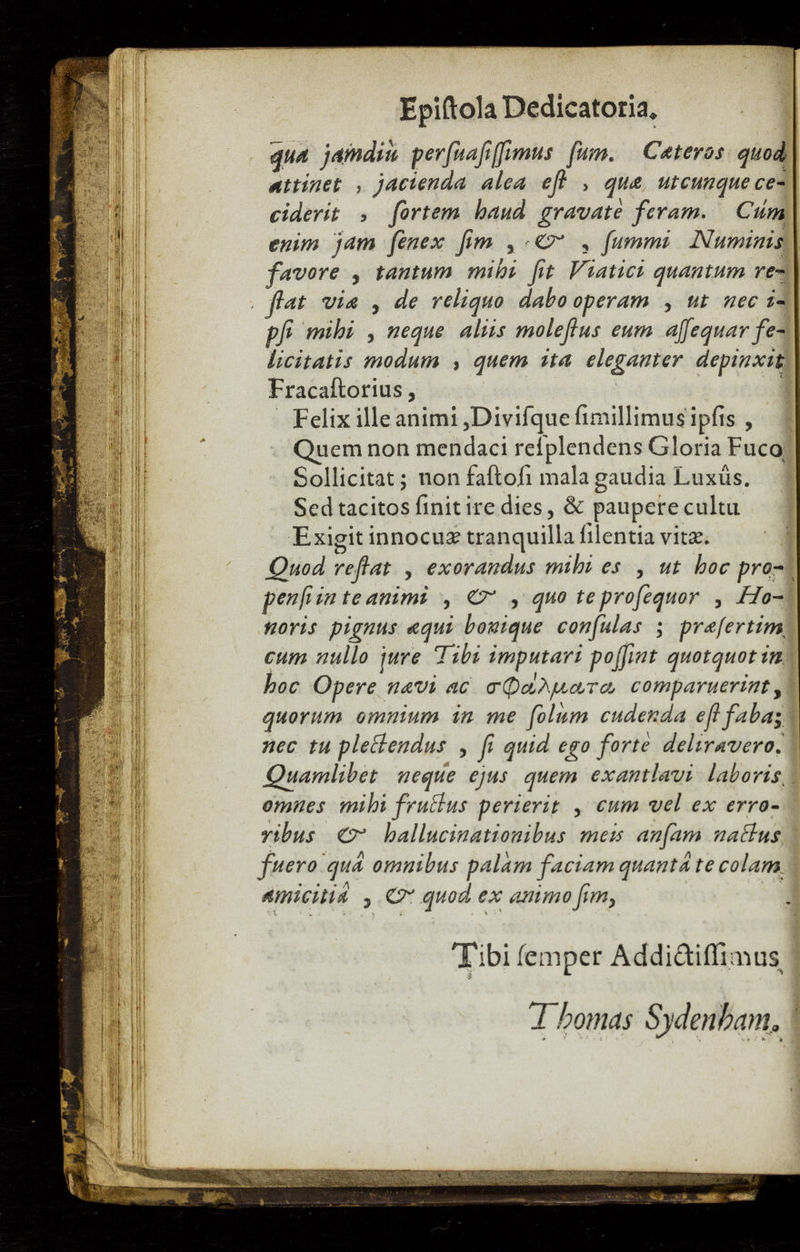 Epiſtola Dedicatoria.
quâ jamdiu perſuaſiſſimus ſum. Cæteros quod
attinet , jacienda alea eſt , quæ utcunque ce-
ciderit , ſortem haud gravatè feram. Cùm
enim jam ſenex ſim , & , ſummi Numinis
favore , tantum mihi ſit Viatici quantum re-
ſtat viæ , de reliquo dabo operam , ut nec i-
pſi mihi , neque aliis moleſtus eum aſſequar fe-
licitatis modum , quem ita eleganter depinxit
Fracaſtorius ,
Felix ille animi ,Diviſque ſimillimus ipſis ,
Quem non mendaci reſplendens Gloria Fuco
Sollicitat ; non faſtoſi mala gaudia Luxûs.
Sed tacitos ſinit ire dies , & paupere cultu
Exigit innocuæ tranquilla ſilentia vitæ.
Quod reſtat , exorandus mihi es , ut hoc pro-
penſi in te animi , & , quo te proſequor , Ho-
noris pignus æqui bonique conſulas ; præſertim
cum nullo jure Tibi imputari poſſint quotquot in
hoc Opere nævi ac σφάλματα comparuerint,
quorum omnium in me ſolum cudenda eſt faba;
nec tu plectendus , ſi quid ego fortè deliravero.
Quamlibet neque ejus quem exantlavi laboris
omnes mihi fructus perierit , cum vel ex erro-
ribus & hallucinationibus meis anſam nactus
fuero quâ omnibus palàm faciam quantâ te colam
amicitiâ , & quod ex animo ſim,
Tibi ſemper Addictiſſimus
Thomas Sydenham.